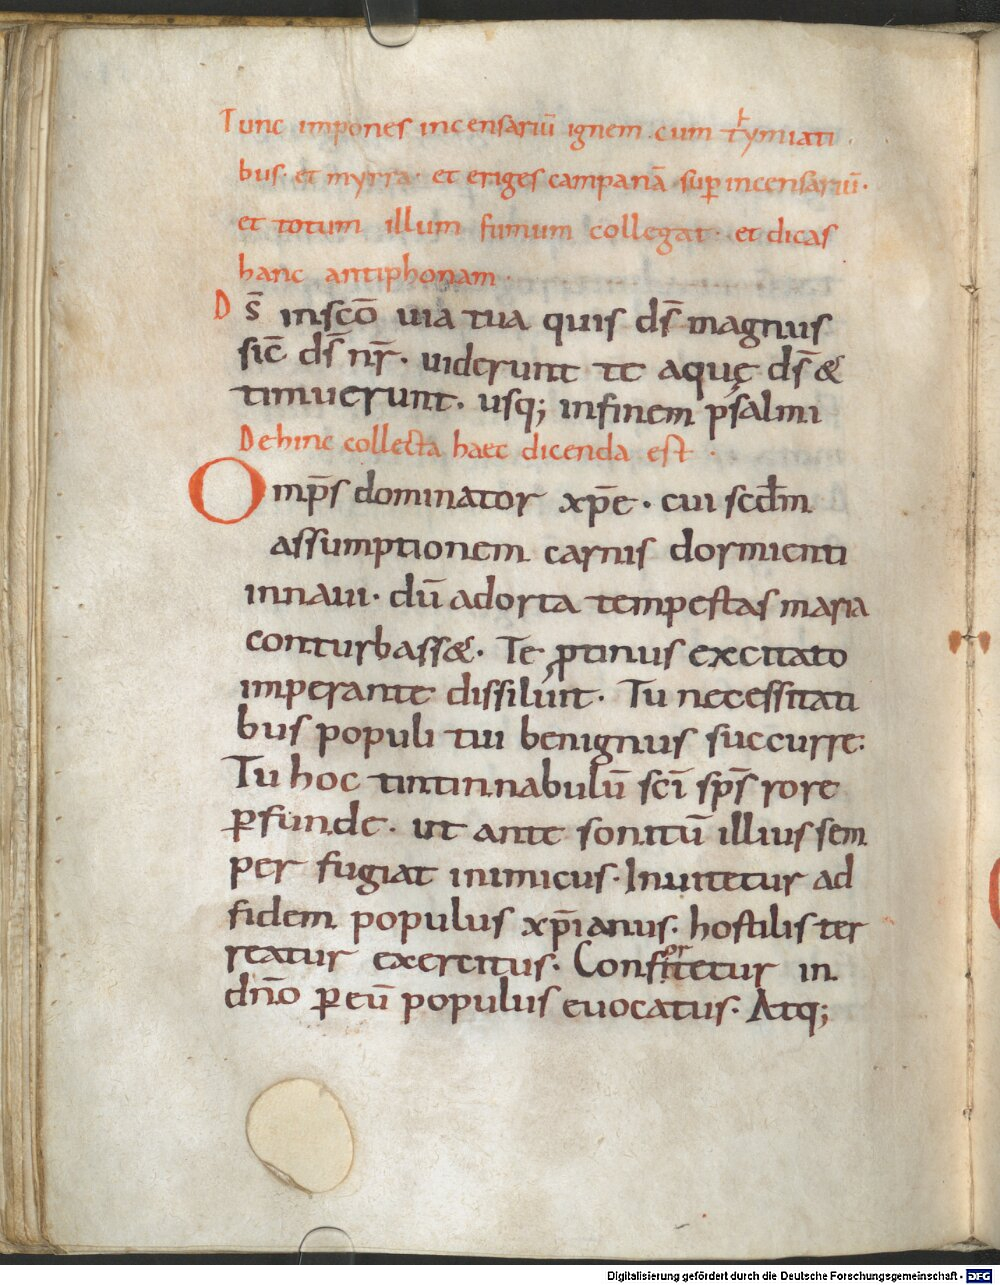 Tunc impones incensariū ignem. cum tymiati
bus. et myrra. et eriges campanā sup̄ incensariū.
et totum illum fumum collegat. et dicas
hanc antiphonam.
Ds̄ insc̄o uia tua quis ds̄ magnus
sic̄ ds̄ nr̄. uiderunt te aquę ds̄ &
timuerunt. usq; infinem psalmi
Dehinc collecta haec dicenda est.
Omp̄s dominator xp̄e. cui scd̄m
assumptionem carnis dormienti
innaui. dū adorta tempestas maria
conturbass&. Te ꝓtinus excitato
imperante dissilunt. Tu necessitati
bus populi tui benignus succurre:
Tu hoc tintinnabulū sc̄i sp̄s rore
ꝑfunde. ut ante sonitū illius sem
per fugiat inimicus. Inuitetur ad
fidem populus xp̄ianus. hostilis ter
reatur exercitus. Confortetur in
dn̄o ꝑ eū populus euocatus. Atq;
Digitalisierung gefördert durch die Deutsche Forschungsgemeinschaft - DFG